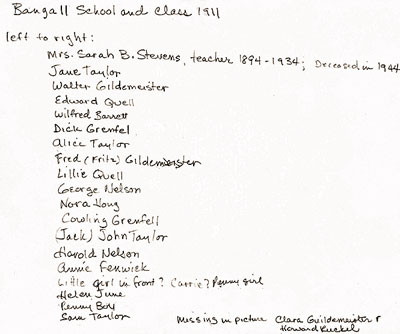 Bangall School and Class 1911
left to right:
Mrs. Sarah B. Stevens, teacher 1894-1934; Deceased in 1944
Jane Taylor
Walter Gildemeister
Edward Quell
Wilfred Barrett
Dick Grenfel
Alice Taylor
Fred (Fritz) Gildemeister
Lillie Quell
George Nelson
Nora Hong
Cowling Grenfell
(Jack) John Taylor
Harold Nelson
Annie Fenwick
Little girl in front? Carrie? Penny girl
Helen June
Penny Boy
Sara Taylor
Missing in picture Clara Guildemeister &
Howard Ruckel